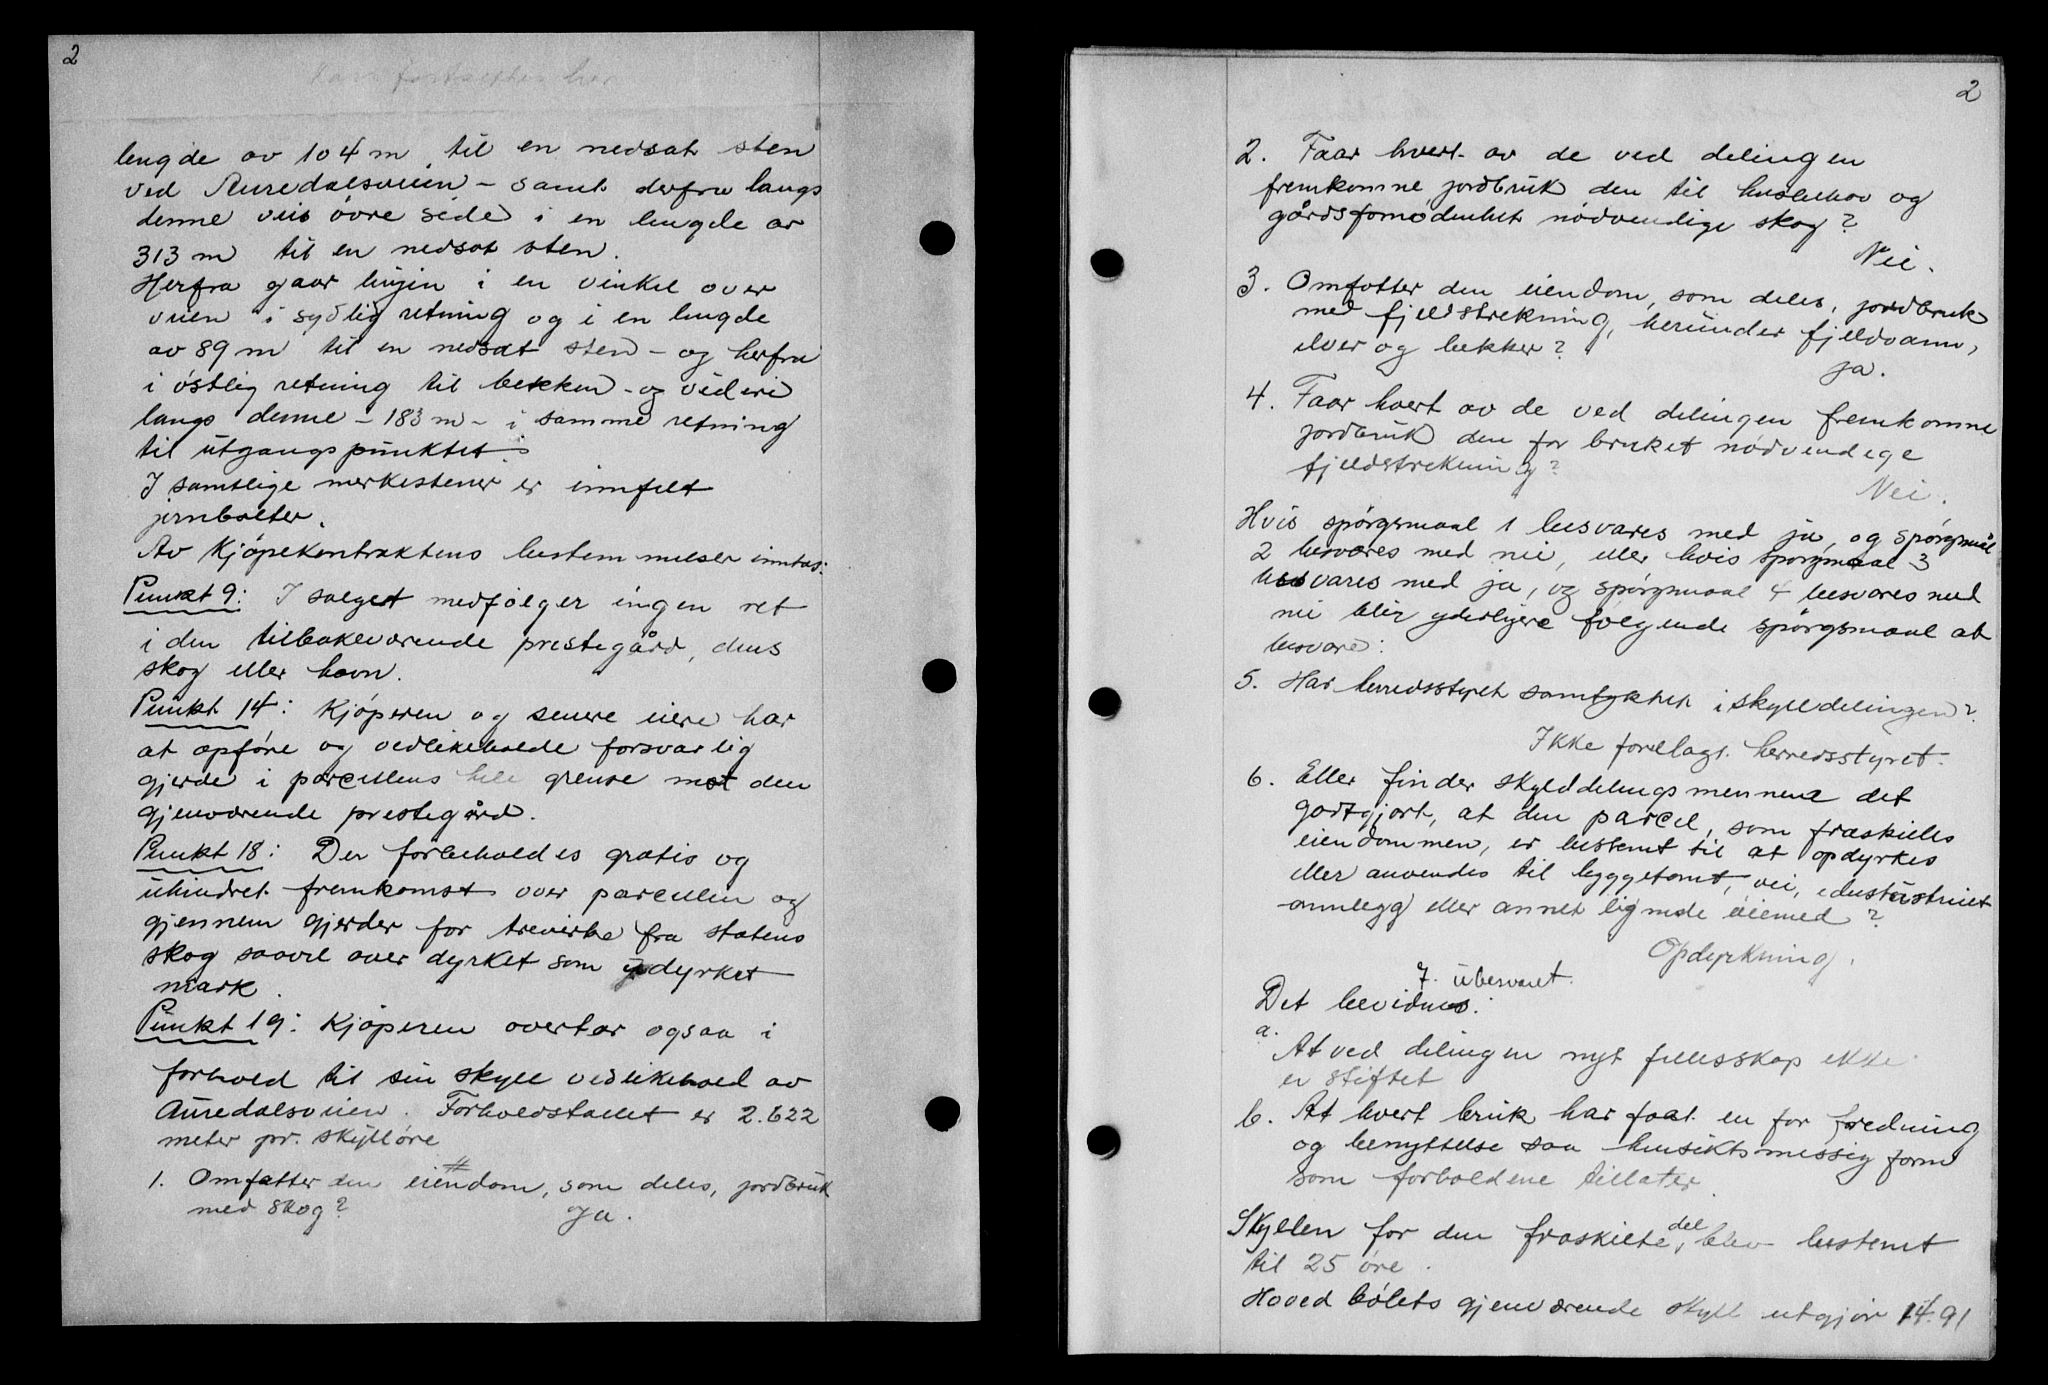 2
lengde av 104 m til en nedsat sten
ved Auredalsveien – samt derfra langs
denne veis øvre side i en lengde av
313 m til en nedsat sten.
Herfra gaar linjen i en vinkel over
veien i sydlig retning og i en lengde
av 89 m til en nedsat sten – og herfra
i østlig retning til bekken – og videre
langs denne – 183 m – i samme retning
til utgangspunktet.
I samtlige merkestener er innfelt
jernbolter.
Av Kjøpekontraktens bestemmelser inntas:
Punkt 9: I salget medfølger ingen ret
i den tilbakeværende prestegård, dens
skog eller havn.
Punkt 14: Kjøperen og senere eiere har
at opføre og vedlikeholde forsvarlig
gjerde i parcellens hele grense mot den
gjenværende prestegård.
Punkt 18: Der forbeholdes gratis og
uhindret fremkomst over parcellen og
gjennem gjerder for trevirke fra statens
skog saavel over dyrket som udyrket
mark.
Punkt 19: Kjøperen overtar ogsaa i
forhold til sin skyll vedlikehold av
Auredalsveien. Forholdstallet er 2.622
meter pr. skylløre
1. Omfatter den eiendom, som deles, jordbruk
med skog?
Ja.
2
2. Faar hvert av de ved delingen
fremkomne jordbruk den til husbehov og
gårdsfornødenhet nødvendige skog?
Nei.
3. Omfatter den eiendom, som deles, jordbruk
med fjellstrekning, herunder fjellvann,
elver og bekker?
Ja.
4. Faar hvert av de ved delingen fremkomne
jordbruk den for bruket nødvendige
fjellstrekning?
Nei.
Hvis spørgsmaal 1 besvares med ja, og spørgsmål
2 besvares med nei, eller hvis spørgsmaal 3
besvares med ja, og spørgsmaal 4 besvares med
nei blir yderligere følgende spørgsmaal at
besvare:
5. Har herredsstyret samtykket i skylldelingen?
Ikke forelagt herredsstyret.
6. Eller finder skylddelingsmennene det
godtgjort, at den parcel, som fraskilles
eiendommen, er bestemt til at opdyrkes
eller anvendes til byggetomt, vei, industrielt
annlegg eller annet lignende øiemed?
Opdyrkning.
7. ubesvaret.
Det bevidnes:
a. At ved delingen nyt fellesskap ikke
er stiftet
b. At hvert bruk har faat en for fredning
og benyttelse saa hensiktsmessig form
som forholdene tillater
Skyllen for den fraskilte del, blev bestemt
til 25 øre.
Hovedbølets gjenværende skyll utgjør 14.91